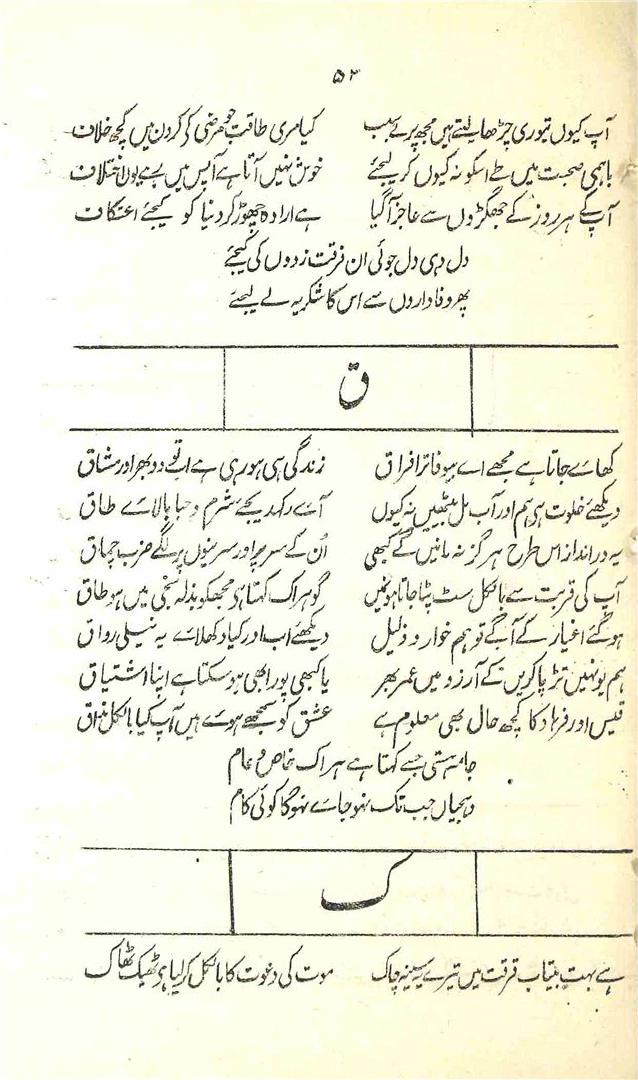 ۵۲
آپ کیوں تیوری چڑھا لیتے ہیں مجھ پر بے سبب کیا مری طاقت جو مرضی کی کروں میں کچھ خلاف
باہمی صحبت میں طے اسکو نہ کیوں کر لیجئے خوش نہیں آتا ہے آپس میں بے یوں اختلاف
آپکے ہر روز کے جھگڑوں سے عاجز آگیا ہے ارادہ چھوڑ کر دنیا کو کیجئے اعتکاف
دل دہی دل جوئی ان فرقت زدوں کی کیجئے
پھر وفاداروں سے اس کا شکریہ لے لیجئے
ق
کھائے جاتا ہے مجھے اے بیوفا تر افراق زندگی سی ہو رہی ہے اب تو دوبھر اور مشاق
دیکھئے خلوت ہی ہم اور آپ مل بیٹھیں نہ کیوں آے رکھدیجئے شرم و حیا بالائے طاق
یہ در انداز اس طرح ہرگز نہ مانیں گے کبھی اُن کے سر پر اور سرینوں پر لگے ضرب چماق
آپ کی قربت سے بالکل سٹ پٹا جاتا ہونمیں گو ہر اک کہتا ہی مجھکو بذلہ سنجی میں ہو طاق
ہو گئے اغیار کے آگے تو ہم خوار و ذلیل دیکھئے اب اور کیا دکھلائے یہ نیلی رواق
ہم یونہیں تڑپا کریں گے آرزو میں عمر بھر یا کبھی پورا بھی ہو سکتا ہے اپنا اشتیاق
قیس اور فرہاد کا کچھ حال بھی معلوم ہے عشق کو سمجھے ہوے ہیں آپ کیا بالکل مذاق
جامہ ہستی جسے کہتا ہے ہر اک خاص و عام
دہجیاں جب تک نہو جاے نہوگا کوئی کام
ک
ہے بہت بیتاب فرقت میں تیرے یہ سینہ چاک موت کی دعوت کا بالکل کر لیا ہو ٹھیک ٹھاک